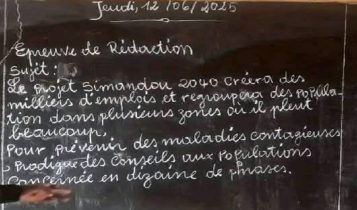 Jeudi, 12 /06/ 2025
Epreuve de Rédaction
Sujet :
Le Projet Simandou 2040 créera des
milliers d'emplois et regroupera des Popula-
tion dans plusieurs zones où il pleut
beaucoup.
Pour prévenir des maladies contagieuses
Prodigue des Conseils aux Populations
Concernée en dizaine de phrases.